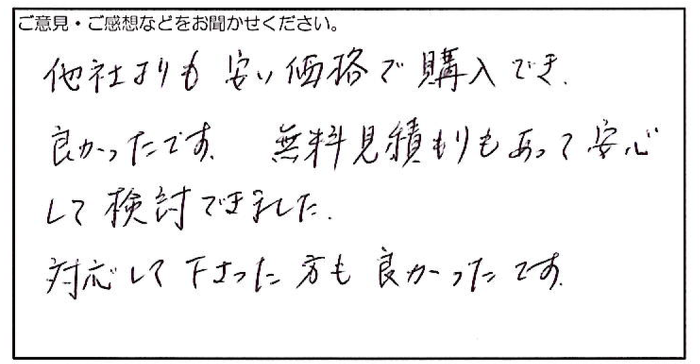 ご意見・ご感想などをお聞かせください。
他社よりも安い価格で購入でき、
良かったです。 無料見積もりもあって安心
して検討できました。
対応して下さった方も良かったです。